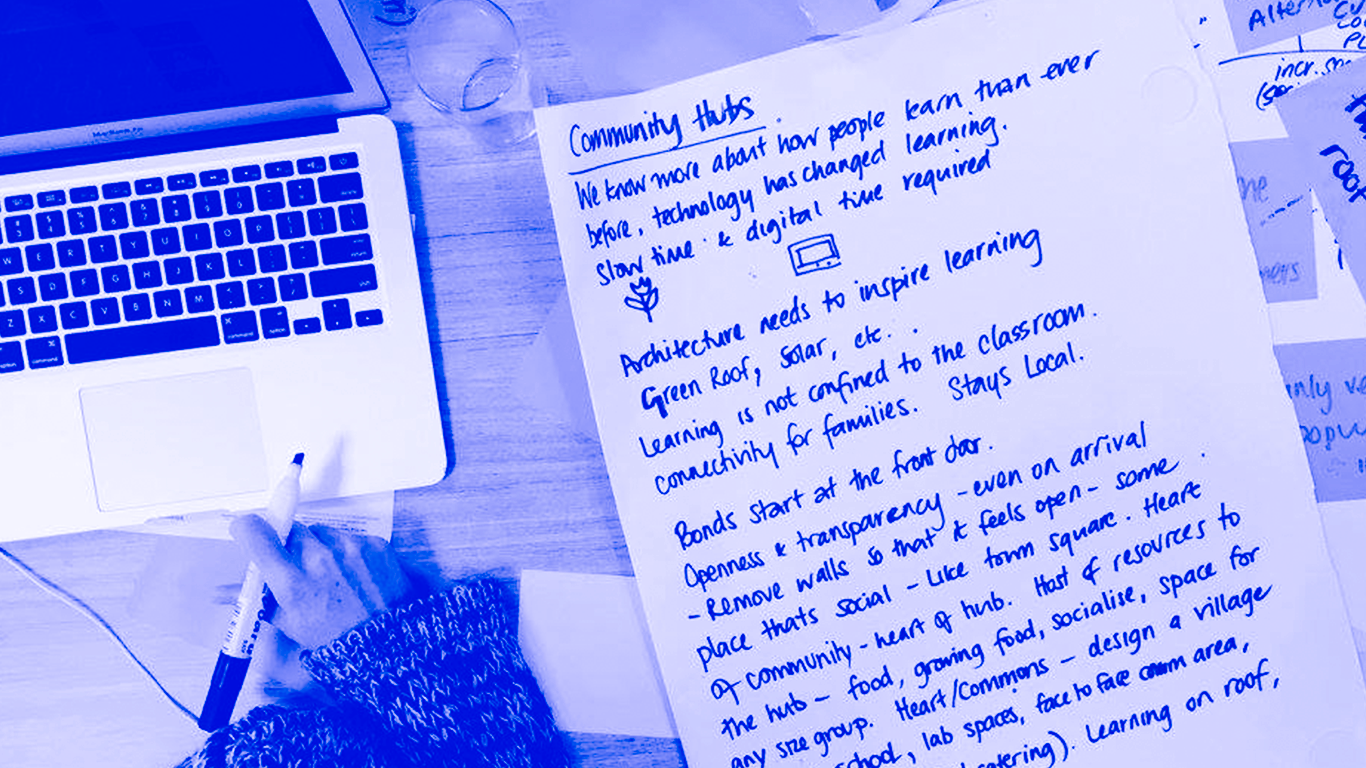 Community Hubs.
We know more about how people learn than ever
before, technology has changed learning.
Slow time & digital time required
Architecture needs to inspire learning
Green Roof, Solar, etc.
Learning is not confined to the classroom.
connectivity for families. Stays Local.
Bonds start at the front door.
Openness & transparency - even on arrival
- Remove walls so that it feels open - some
place thats social - Like town square. Heart
of community - heart of hub. Host of resources to
the hub - food, growing food, socialise, space for
any size group. Heart/Commons - design a village
school, lab spaces, face to face comm area,
catering). Learning on roof,
MacBook Air
command
option
command
option
roof